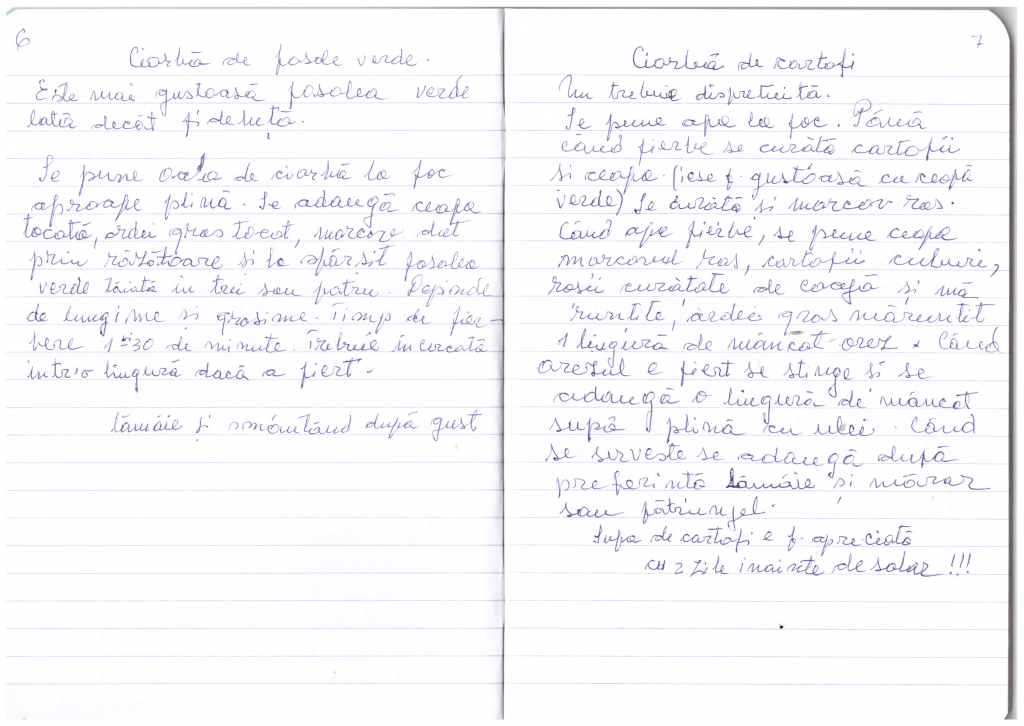 6
Ciorbă de fasole verde.
Este mai gustoasă fasolea verde
lată decât fideluță.
Se pune oala de ciorbă la foc
aproape plină. Se adaugă ceapa
tocată, ardei gras tocat, morcov dat
prin răzătoare si la sfârsit fasolea
verde tăiată in trei sau patru. Depinde
de lungime si grosime. Timp de fier-
bere 1h30 de minute. Trebuie incercată
intr'o lingură dacă a fiert.
lămâie și smântână după gust
7
Ciorbă de cartofi
Nu trebuie disprețuită.
Se pune apa la foc. Până
când fierbe se curătă cartofii
si ceapa. (iese f. gustoasă cu ceapă
verde) Se curătă si morcov ras.
Când apa fierbe, se pune ceapa
morcovul ras, cartofii cuburi,
rosii curătate de coajă si mă
runtite, ardei gras măruntit
1 lingură de mâncat orez. Când
orezul e fiert se stinge si se
adaugă o lingură de mâncat
supă plină cu ulei. Când
se serveste se adaugă după
preferintă lămâie si mărar
sau pătrunjel.
Supa de cartofi e f. apreciată
cu 2 zile inainte de salar !!!